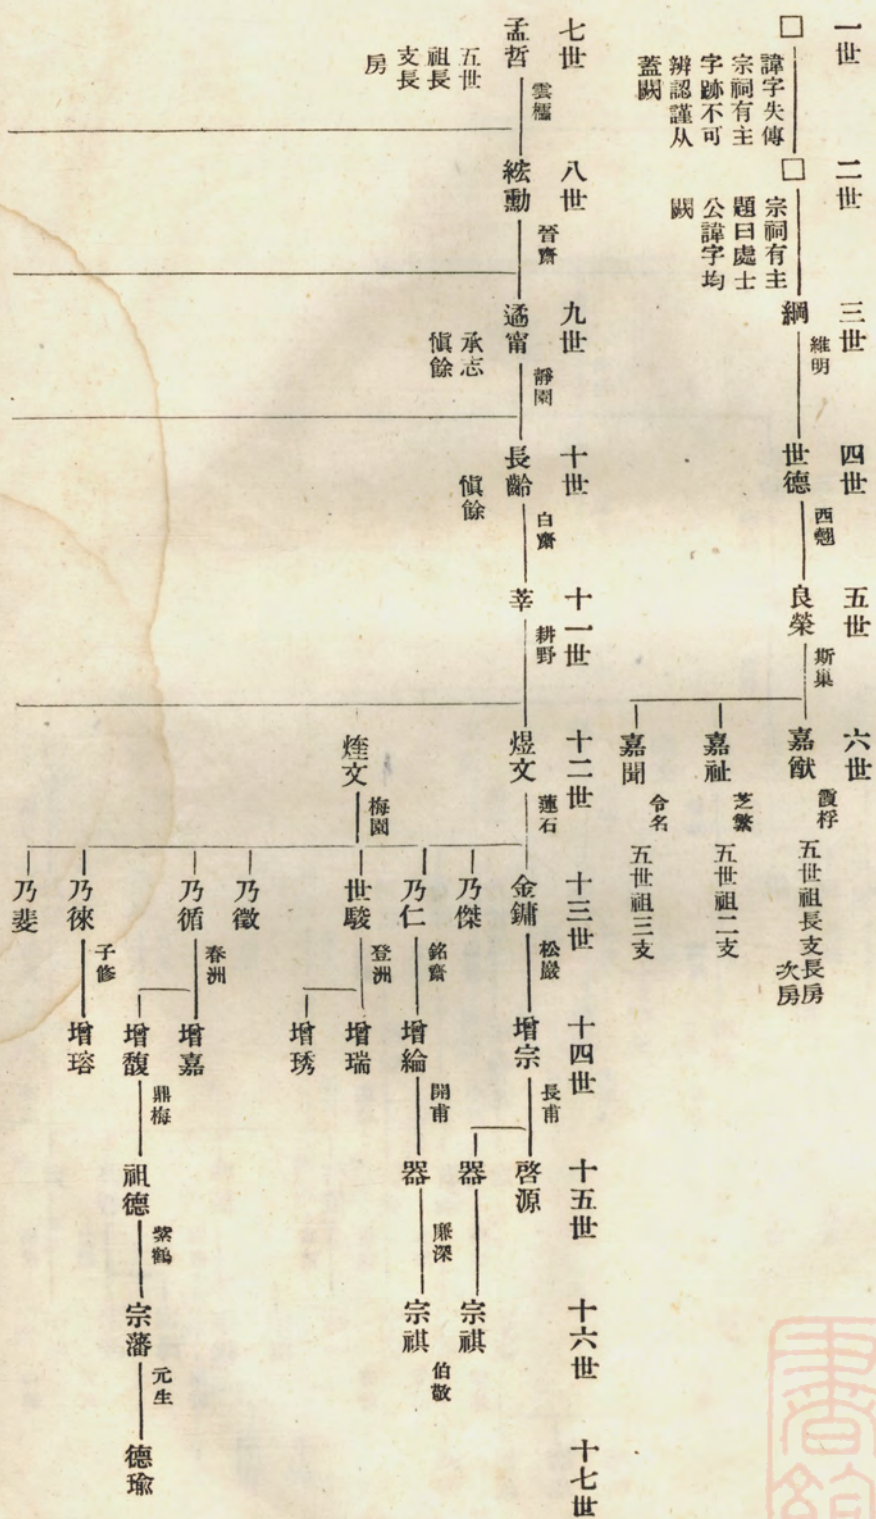 一世
□
諱字失傳
宗祠有主
字跡不可
辨認謹从
蓋闕
二世
□
宗祠有主
題曰處士
公諱字均
闕
三世
綱
維明
四世
世德
西翹
五世
良榮
斯巢
六世
嘉猷
霞桴
五世祖長支長房
次房
嘉祉
芝繁
五世祖二支
嘉聞
令名
五世祖三支
七世
孟哲
雲櫺
五世
祖長
支長
房
八世
紘勳
晉齋
九世
遹甯
靜園
承志
愼餘
十世
長齡
白齋
愼餘
十一世
莘
耕野
十二世
煜文
蓮石
烓文
梅園
十三世
金鏞
松巖
乃傑
乃仁
銘齋
世駿
登洲
乃徵
乃循
春洲
乃徠
子修
乃斐
十四世
增宗
長甫
增綸
開甫
增瑞
增琇
增嘉
增馥
鼎梅
增瑢
十五世
啓源
器
器
廉深
祖德
紫鶴
十六世
宗祺
宗祺
伯敬
宗藩
元生
十七世
德瑜
書